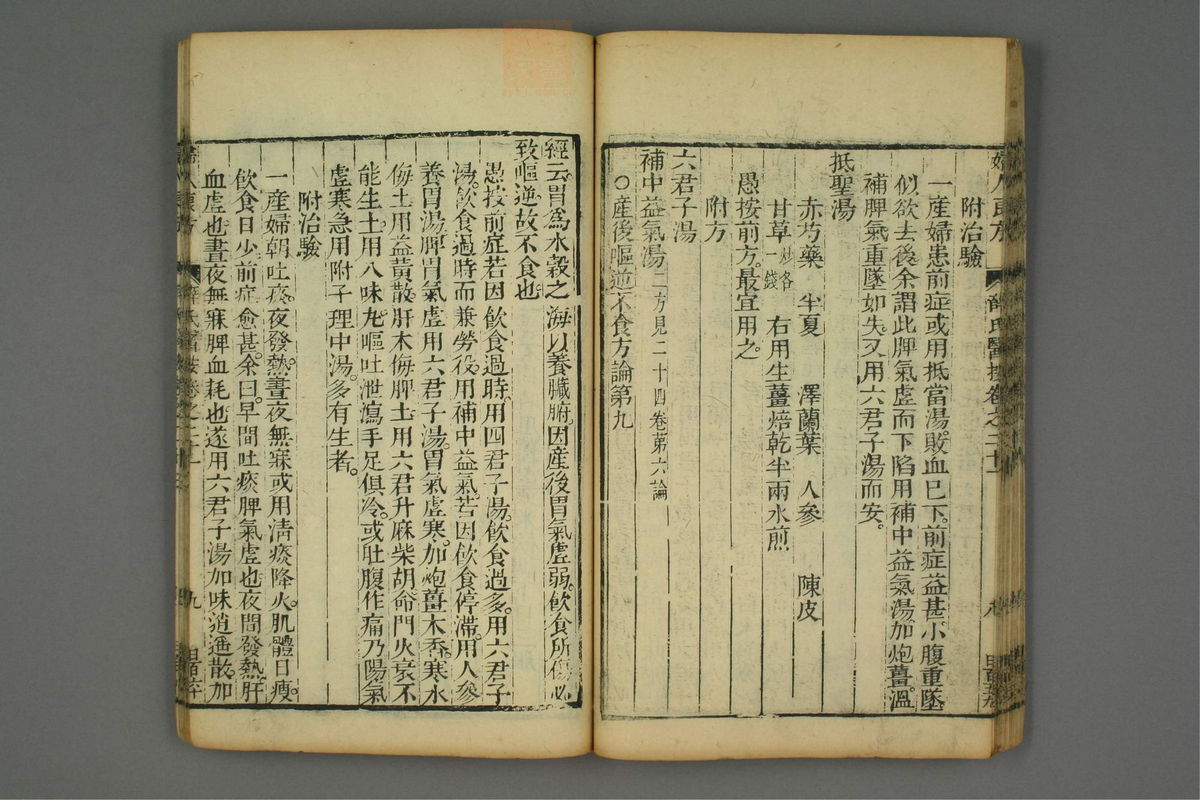 婦人良方
薛氏醫按卷之二十一
附治驗
一產婦患前症或用抵當湯敗血巳下前症益甚小腹重墜
似欲去後余謂此脾氣虛而下陷用補中益氣湯加炮薑溫
補脾氣重墜如失又用六君子湯而安
抵聖湯
赤芍藥 半夏 澤蘭葉 人參 陳皮
甘草炒各一錢 右用生薑焙乾半兩水煎
愚按前方最宜用之
附方
六君子湯
補中益氣湯二方見二十四卷第六論
○產後嘔逆不食方論第九
經云胃爲水穀之海以養臟腑因產後胃氣虛弱飲食所傷必
致嘔逆故不食也
愚按前症若因飲食過時用四君子湯飲食過多用六君子
湯飲食過時而兼勞役用補中益氣若因飲食停滯用人參
養胃湯脾胃氣虛用六君子湯胃氣虛寒加炮薑木香寒水
侮土用益黃散肝木侮脾土用六君升麻柴胡命門火衰不
能生土用八味丸嘔吐泄瀉手足俱冷或肚腹作痛乃陽氣
虛寒急用附子理中湯多有生者
附治驗
一產婦朝吐痰夜發熱晝夜無寐或用清痰降火肌體日瘦
飲食日少前症愈甚余曰早間吐痰脾氣虛也夜間發熱肝
血虛也晝夜無寐脾血耗也遂用六君子湯加味逍遙散加
薛氏醫按卷之二十一
九